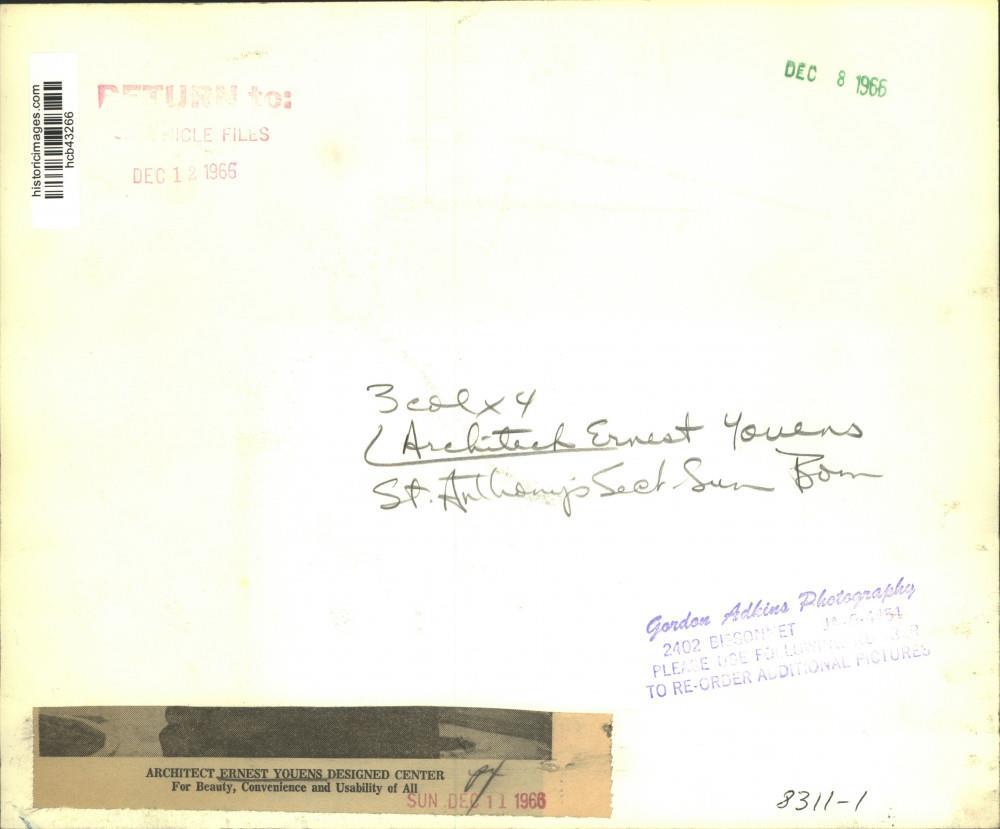 historicimages.com
hcb43266
RETURN to:
FILES
DEC 12 1966
DEC 8 1966
3 col x 4
Architech Ernest Youens
St. Anthony's Sect. Sun
Gordon Adkins Photography
2402 BISSONNET
PLEASE USE FOLLOWING
TO RE-ORDER ADDITIONAL PICTURES
ARCHITECT ERNEST YOUENS DESIGNED CENTER
For Beauty, Convenience and Usability of All
SUN DEC 11 1966
8311-1